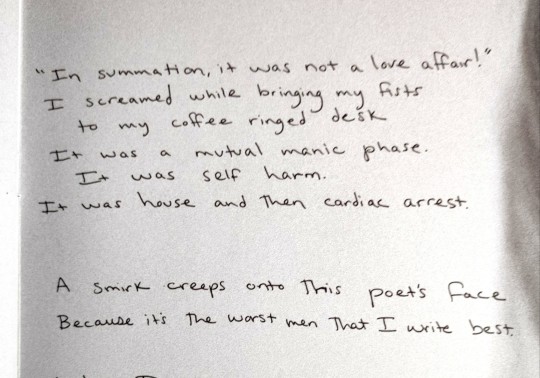 "In summation, it was not a love affair!"
I screamed while bringing my fists
to my coffee ringed desk
It was a mutual manic phase.
It was self harm.
It was house and then cardiac arrest.
A smirk creeps onto this poet's face
Because it's the worst men that I write best.